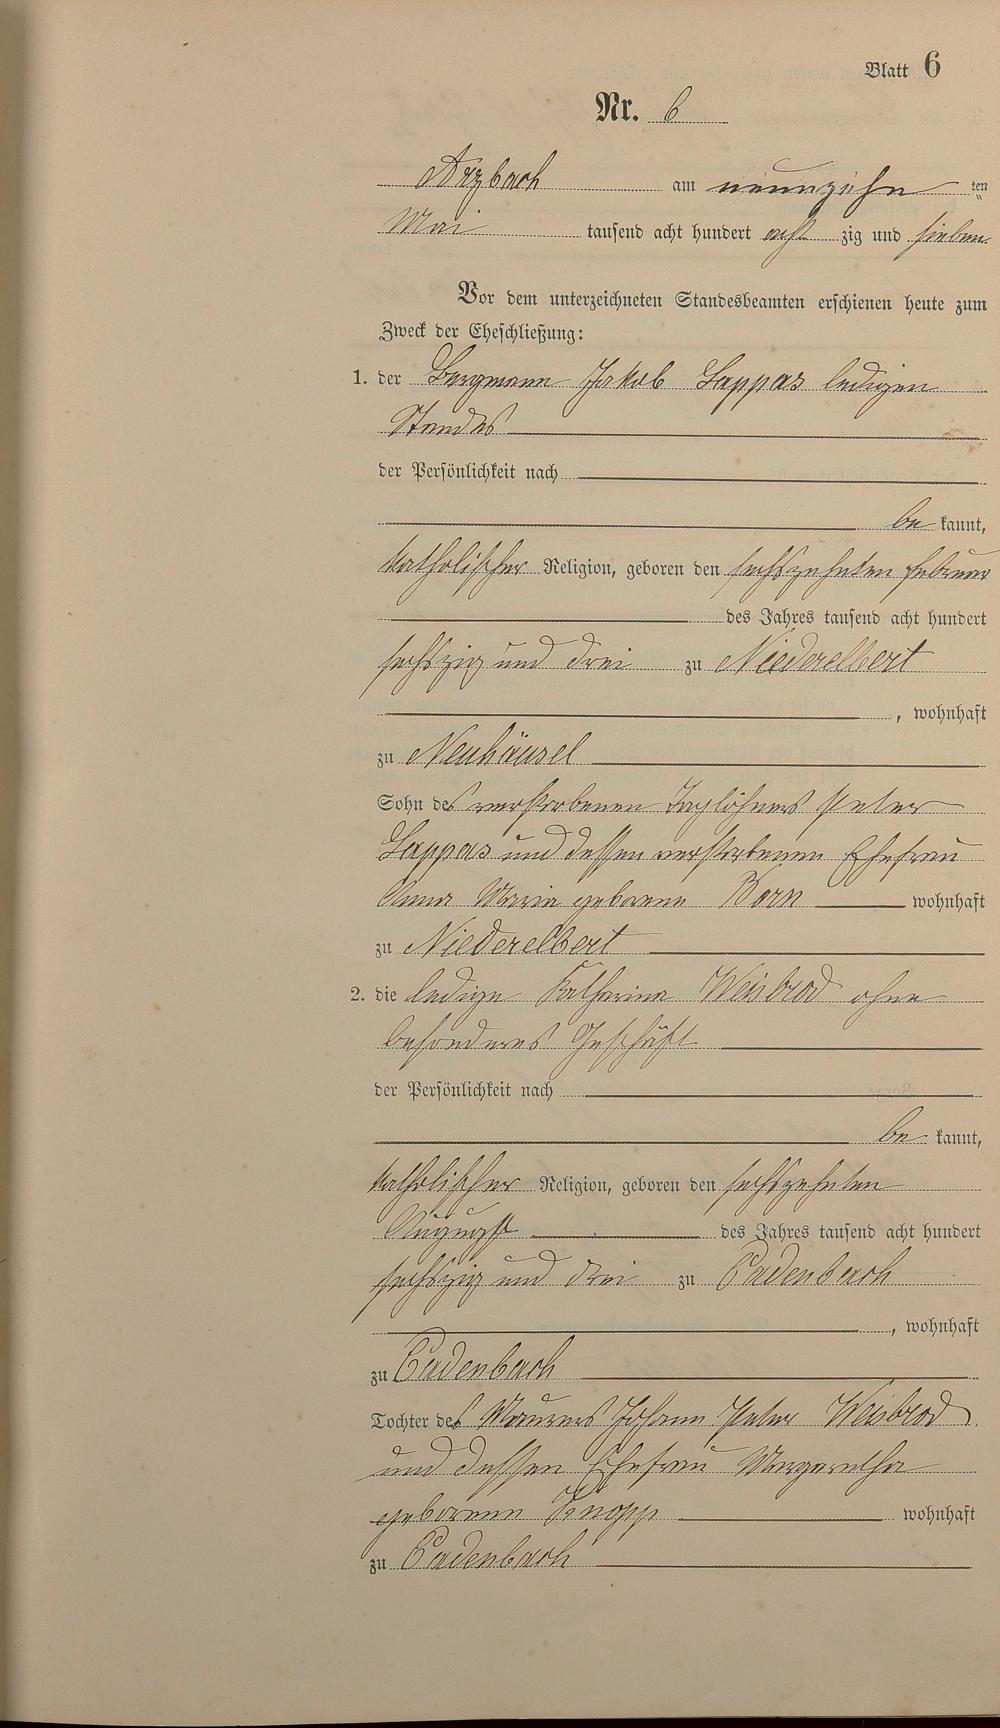 Blatt 6
Nr. 6
Arzbach am neunzehn ten
Mai tausend acht hundert acht zig und sieben
Vor dem unterzeichneten Standesbeamten erschienen heute zum
Zweck der Eheschließung:
1. der Bergmann Jakob Lappas ledigen
Standes
der Persönlichkeit nach
be kannt,
katholischer Religion, geboren den sechszehnten Februar
des Jahres tausend acht hundert
sechszig und drei zu Niederelbert
, wohnhaft
zu Neuhäusel
Sohn des verstorbenen Taglöhners Peter
Lappas und dessen verstorbenen Ehefrau
Anna Maria geborene Born wohnhaft
zu Niederelbert
2. die ledige Katharina Weisbrod ohne
besonderes Geschäft
der Persönlichkeit nach
be kannt,
katholischer Religion, geboren den sechszehnten
August des Jahres tausend acht hundert
sechszig und drei zu Cadenbach
, wohnhaft
zu Cadenbach
Tochter des Maurers Johann Peter Weisbrod
und dessen Ehefrau Margaretha
geborene Knopp wohnhaft
zu Cadenbach